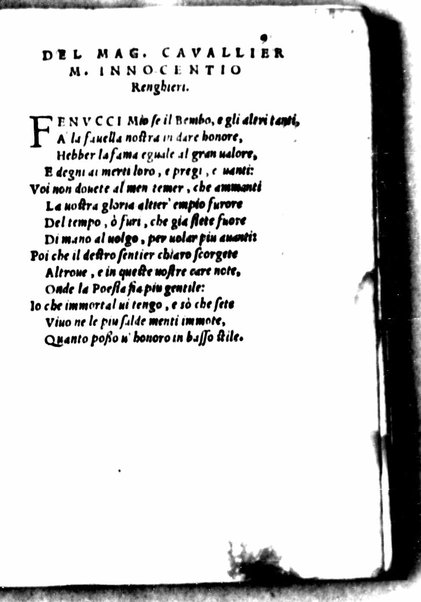 9
DEL MAG. CAVALLIER
M. INNOCENTIO
Renghieri.
FENVCCI Mio se il Bembo, e gli altri tanti,
A' la fauella nostra in dare honore,
Hebber la fama eguale al gran ualore,
E degni ai merti loro, e pregi, e uanti:
Voi non douete al men temer, che ammanti
La uostra gloria alter' empio furore
Del tempo, ò furi, che gia siete fuore
Di mano al uolgo, per uolar piu auanti:
Poi che il destro sentier chiaro scorgete
Altroue, e in queste uostre care note,
Onde la Poesia sia piu gentile:
Io che immortal ui tengo, e sò che sete
Viuo ne le piu salde menti immote,
Quanto posso u' honoro in basso stile.